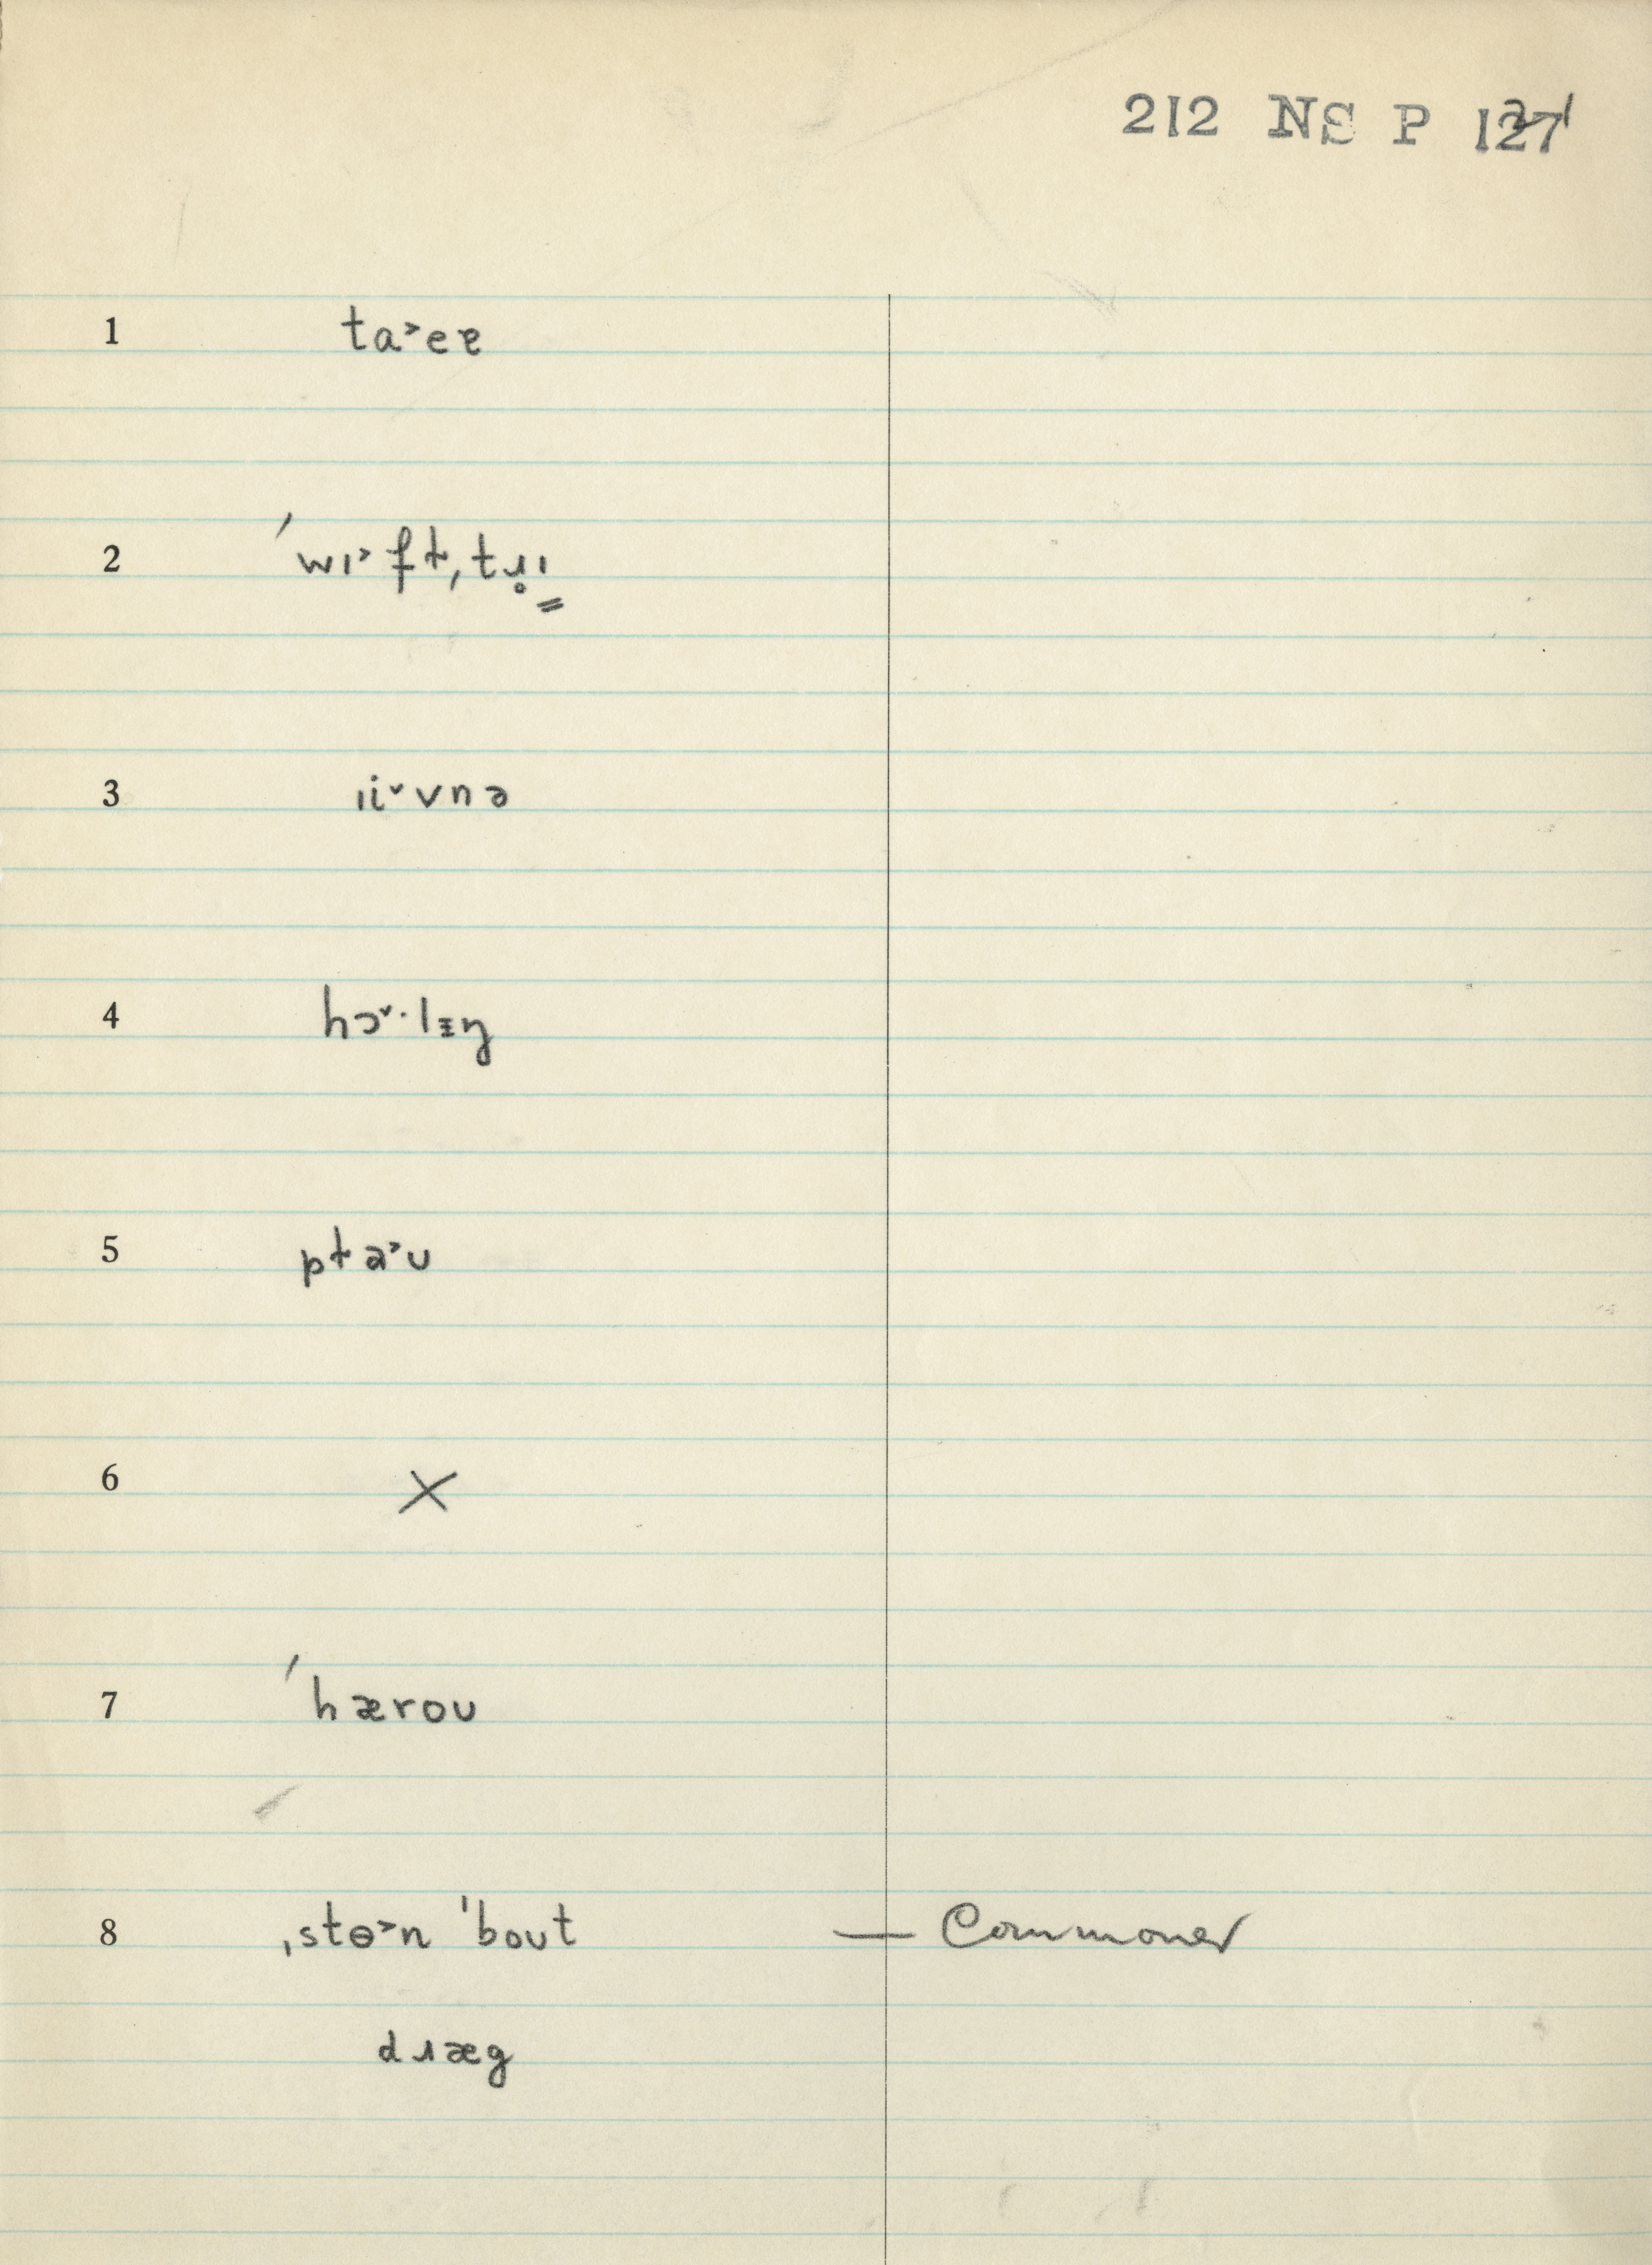 212 NS P 121
1 ta˃eɐ
2 ˈwɪ˃ft̵ˌtɹ̥ɪ
3 ɹi˅vnə
4 hɔ˅·lɪŋ
5 pɫa˃ʊ
6 X
7 ˈhæroʊ
8 ˌstɵ˃n ˈboʊt — Commoner
dɹæg